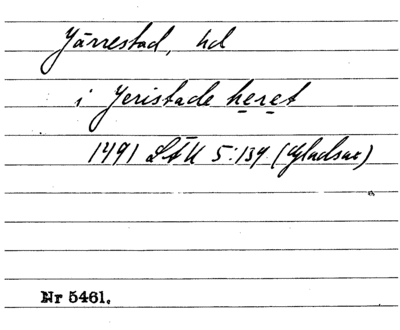 Järrestad, hd
i Jeristade heret
1491 LÄU 5:139 (Gladsax)
Nr 5461.